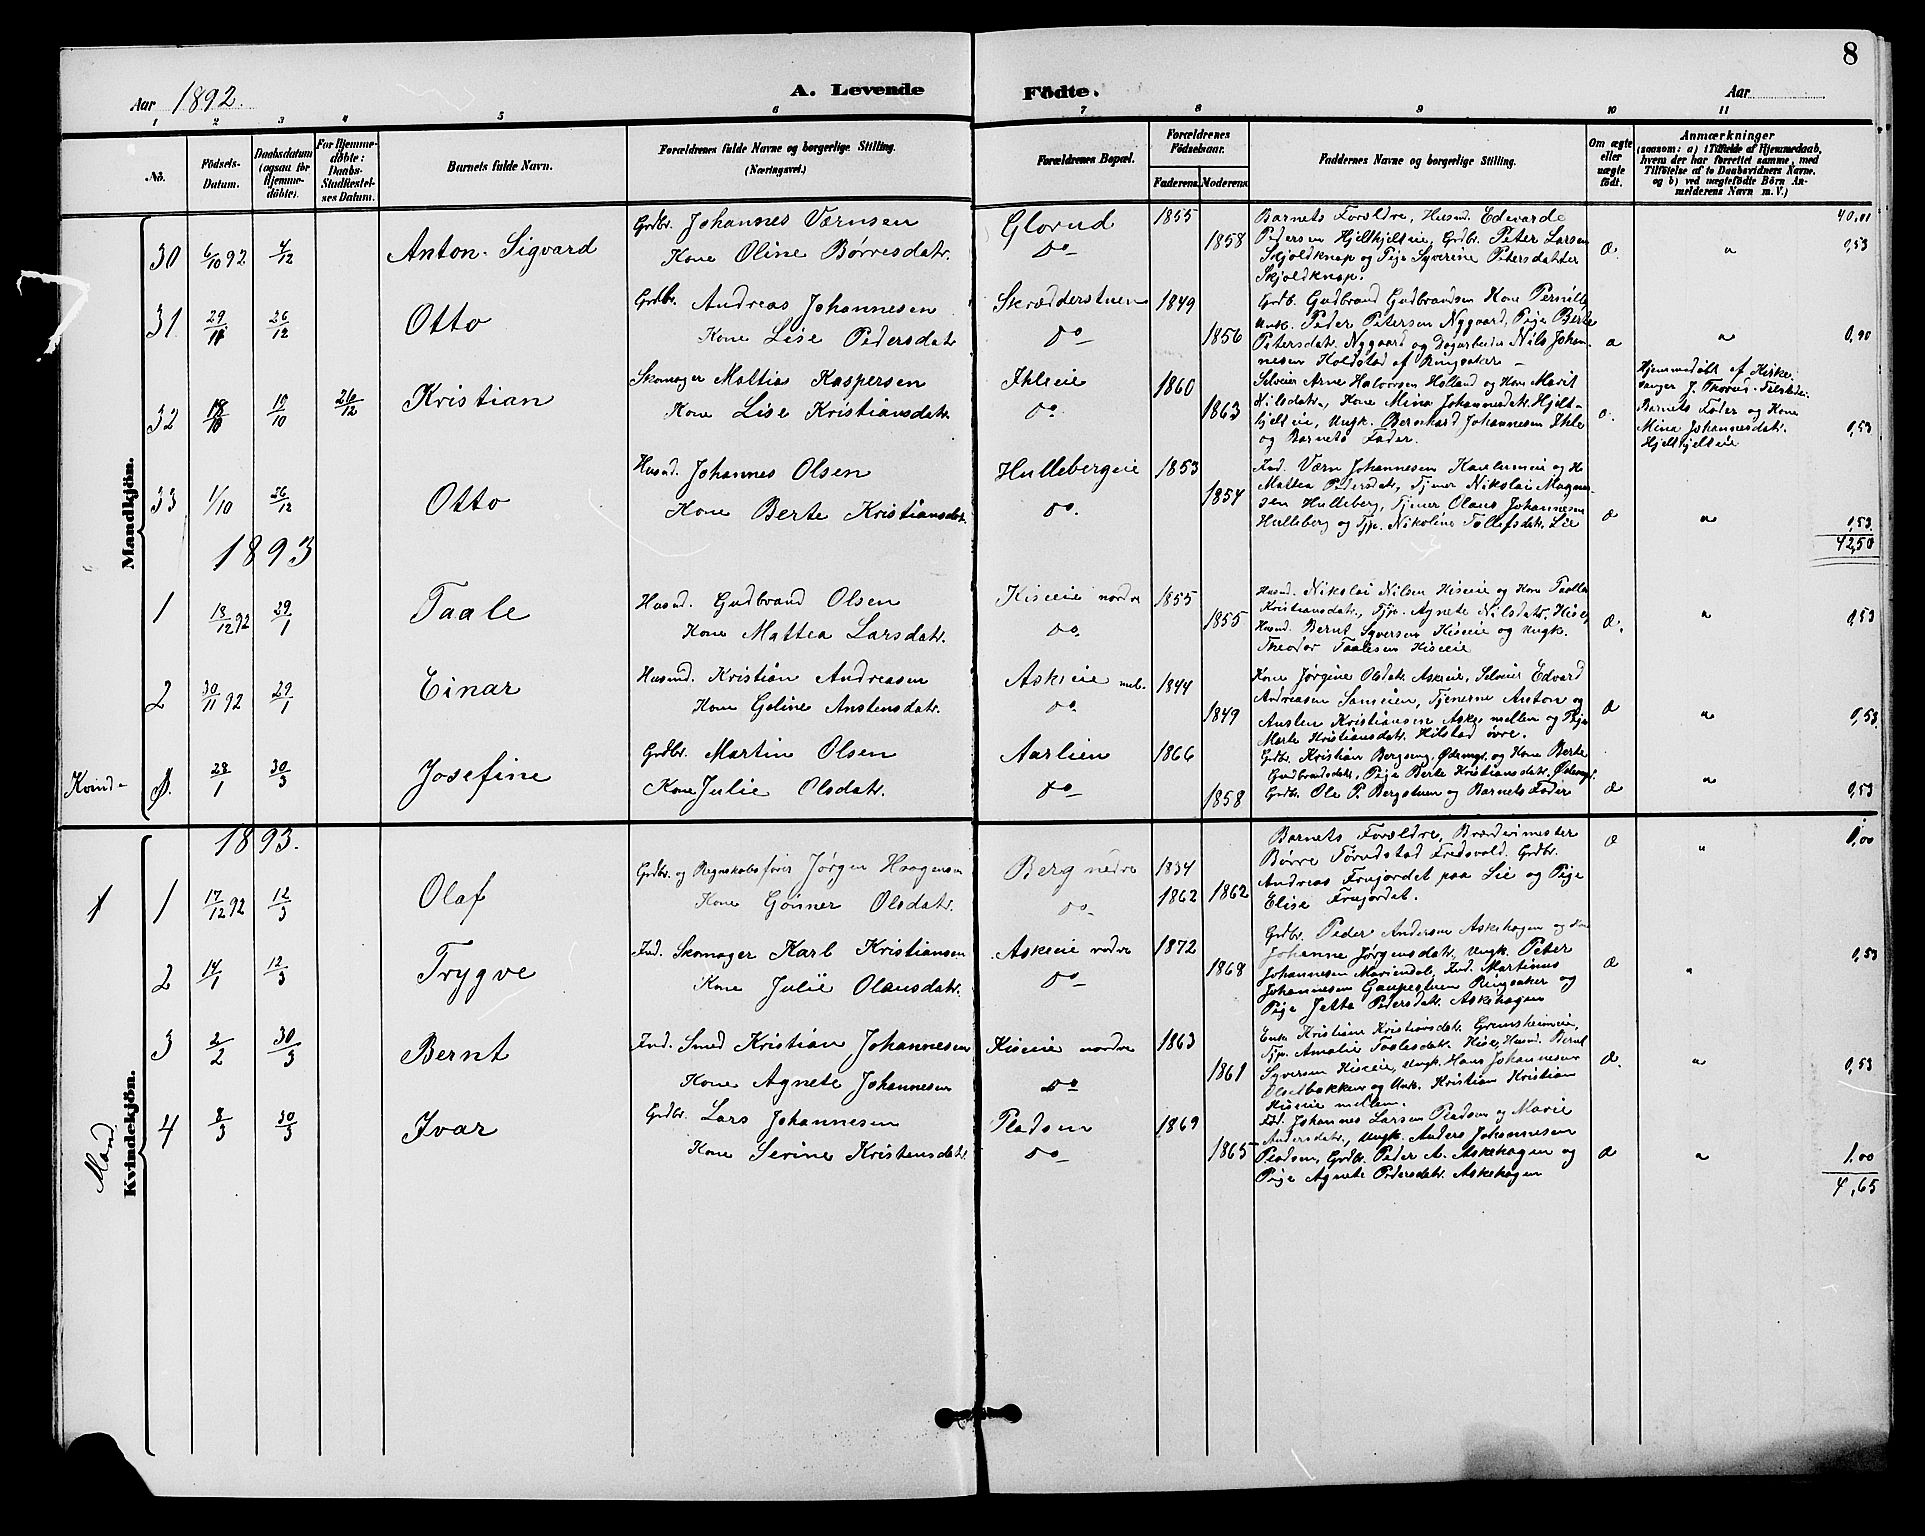 8
Aar 1892.
A. Levende
Födte.
Aar
1 2 3 4 5 6 7 8 9 10 11
No.
Födsels-Datum.
Daabsdatum (ogsaa for Hjemme-döbte).
For Hjemme-döbte: Daabs-Stadfæstelses Datum.
Barnets fulde Navn.
Forældrenes fulde Navne og borgerlige Stilling.
(Næringsvei.)
Forældrenes Bopæl.
Forældrenes Födselsaar.
Faderens. Moderens.
Faddernes Navne og borgerlige Stilling.
Om ægte eller uægte födt.
Anmærkninger
(saasom: a) i Tilfælde af Hjemmedaab,
hvem der har forrettet samme, med
Tilföielse af to Daabsvidners Navne.
og b) ved uægtefödte Börn An-
melderens Navn m. V.)
Mandkjön.
30 6/10 92 4/12 Anton Sigvard
Grdbr. Johannes Værnsen
Kone Oline Børresdatr.
Glorud
Do
1855
1858
Barnets Forældre, Husmd. Edevarde
Pedersen Hjelthjelteie, Grdbr. Peter Larsen
Skjoldknap og Pige Syverine Petersdatter
Skjoldknap.
æ. "
40,01
0,53
31 29/11 26/12 Otto
Grdbr. Andreas Johannesen
Kone Lise Pedersdatr
Skrædderstuen
do
1849
1856
Grdb. Gudbrand Gudbrandsen Kone Pernille
Ungk. Peder Petersen Nygaard, Pige Berte
Petersdatr. Nygaard og Dagarbeider Nils Johan-
nesen Holdstad af Ringsaker
æ "
0,90
32 18/10 19/10 26/12 Kristian
Skomager Mattias Kaspersen
Kone Lise Kristiansdatr.
Ihleie
do.
1860
1863
Selveier Arne Halvorsen Holland og Kone Marit
Nilsdatr., Kone Mina Johannesdatr. Hjelt-
hjelteie, Ungk. Bernhard Johannesen Ihle
og Barnets Fader.
æ.
Hjemmedöbt af Kirke-
sanger J. Thorud.
Barnets Fader og Kone
Mina Johannesdatr.
Hjelthjelteie
0,53
33 1/10 26/12 Otto
Husmd. Johannes Olsen
Kone Berte Kristiansdatr.
Hullebergeie
do.
1853
1854
Ind. Værn Johannesen og K
Mattea Pedersdatr., Tjener Nikolai Magne-
sen Hulleberg, Tjener Olaus Johannesen
Hulleberg og Tjp. Nikoline Tollefsdatr. Lie
æ "
0,53
42,50
1893
1 13/12 92 29/1 Taale
Husmd. Gudbrand Olsen
Kone Mattea Larsdatr.
Kiseeie nordre
do.
1855
1855
Husmd. Nikolai Nilsen Kiseeie og Kone
Kristiansdatr., Tjp. Agnete Nilsdatr. Kise,
Husmd. Bernt Syversen Kiseeie og Ungk.
Theodor Taalesen Kiseeie
æ. "
0,53
2 30/11 92 29/1 Einar
Husmd. Kristian Andreasen
Kone Goline Anstensdatr.
Askeie mel.
do.
1844
1849
Kone Jørgine Olsdatr. Askeie, Selveier Edvard
Andreasen, Tjenerne Anton og
Ansten Kristiansen Aske mellem og Pige
Marte Kristiansdatr. Hilstad övre.
æ "
0,53
Kvind-
Ø. 28/1 30/3 Josefine
Grdbr. Martin Olsen
Kone Julie Olsdatr.
Aarlien
do
1866
1858
Grdbr. Kristian Bergseng, og Kone Berte
Gudbrandsdatr., Pige Berte Kristiansdatr.
Grdbr. Ole P. Bergstuen og Barnets Fader
æ "
0,53
Kvindekjön.
Mand
1893.
1 1 17/12 92 12/3 Olaf
Grdbr. og Regnskabsförer Jørgen Haagensen
Kone Gonner Olsdatr.
Berg nedre
do
1834
1862 1862
Barnets Forældre,
Børre Tørudstad Fredsvold. Grdbr.
Andreas Frujordet paa Lie og Pige
Elise Frujordet.
æ "
1,00
2 14/1 12/3 Trygve
Ind. Skomager Karl Kristiansen
Kone Julie Olausdatr.
Askeie nedre
do
1872
1868
Grdbr. Peder Andersen Askehagen og Kone
Johanne Jørgensdatr., Ungk. Peter
Johannesen Mariendal, Ind. Martinus
Johannesen Gaupestuen Ringsaker og
Pige Jette Pedersdatr. Askehagen
æ "
0,53
3 2/2 30/3 Bernt
Ind. Smed Kristian Johannesen
Kone Agnete Johannesen
Kiseeie nordre
do
1863
1861
Enke Kristiane Kristiansdatr. Gremsheimeie,
Tjp. Amalie Taalesdatr. Kise, Husmd. Bernt
Syversen Kiseeie, Ungk. Hans Johannesen
og Ungk. Kristian Kristian
Kiseeie mellem.
æ. "
0,53
4 8/3 30/3 Ivar
Grdbr. Lars Johannesen
Kone Serine Kristensdatr.
Pladsen
do
1869
1865
Fød. Johannes Larsen Pladsen og Marie
Andersdatr., Ungk. Anders Johannesen
Pladsen, Grdbr. Peder A. Askehagen og
Pige Agnete Pedersdatr. Askehagen
æ "
1,00
4,65